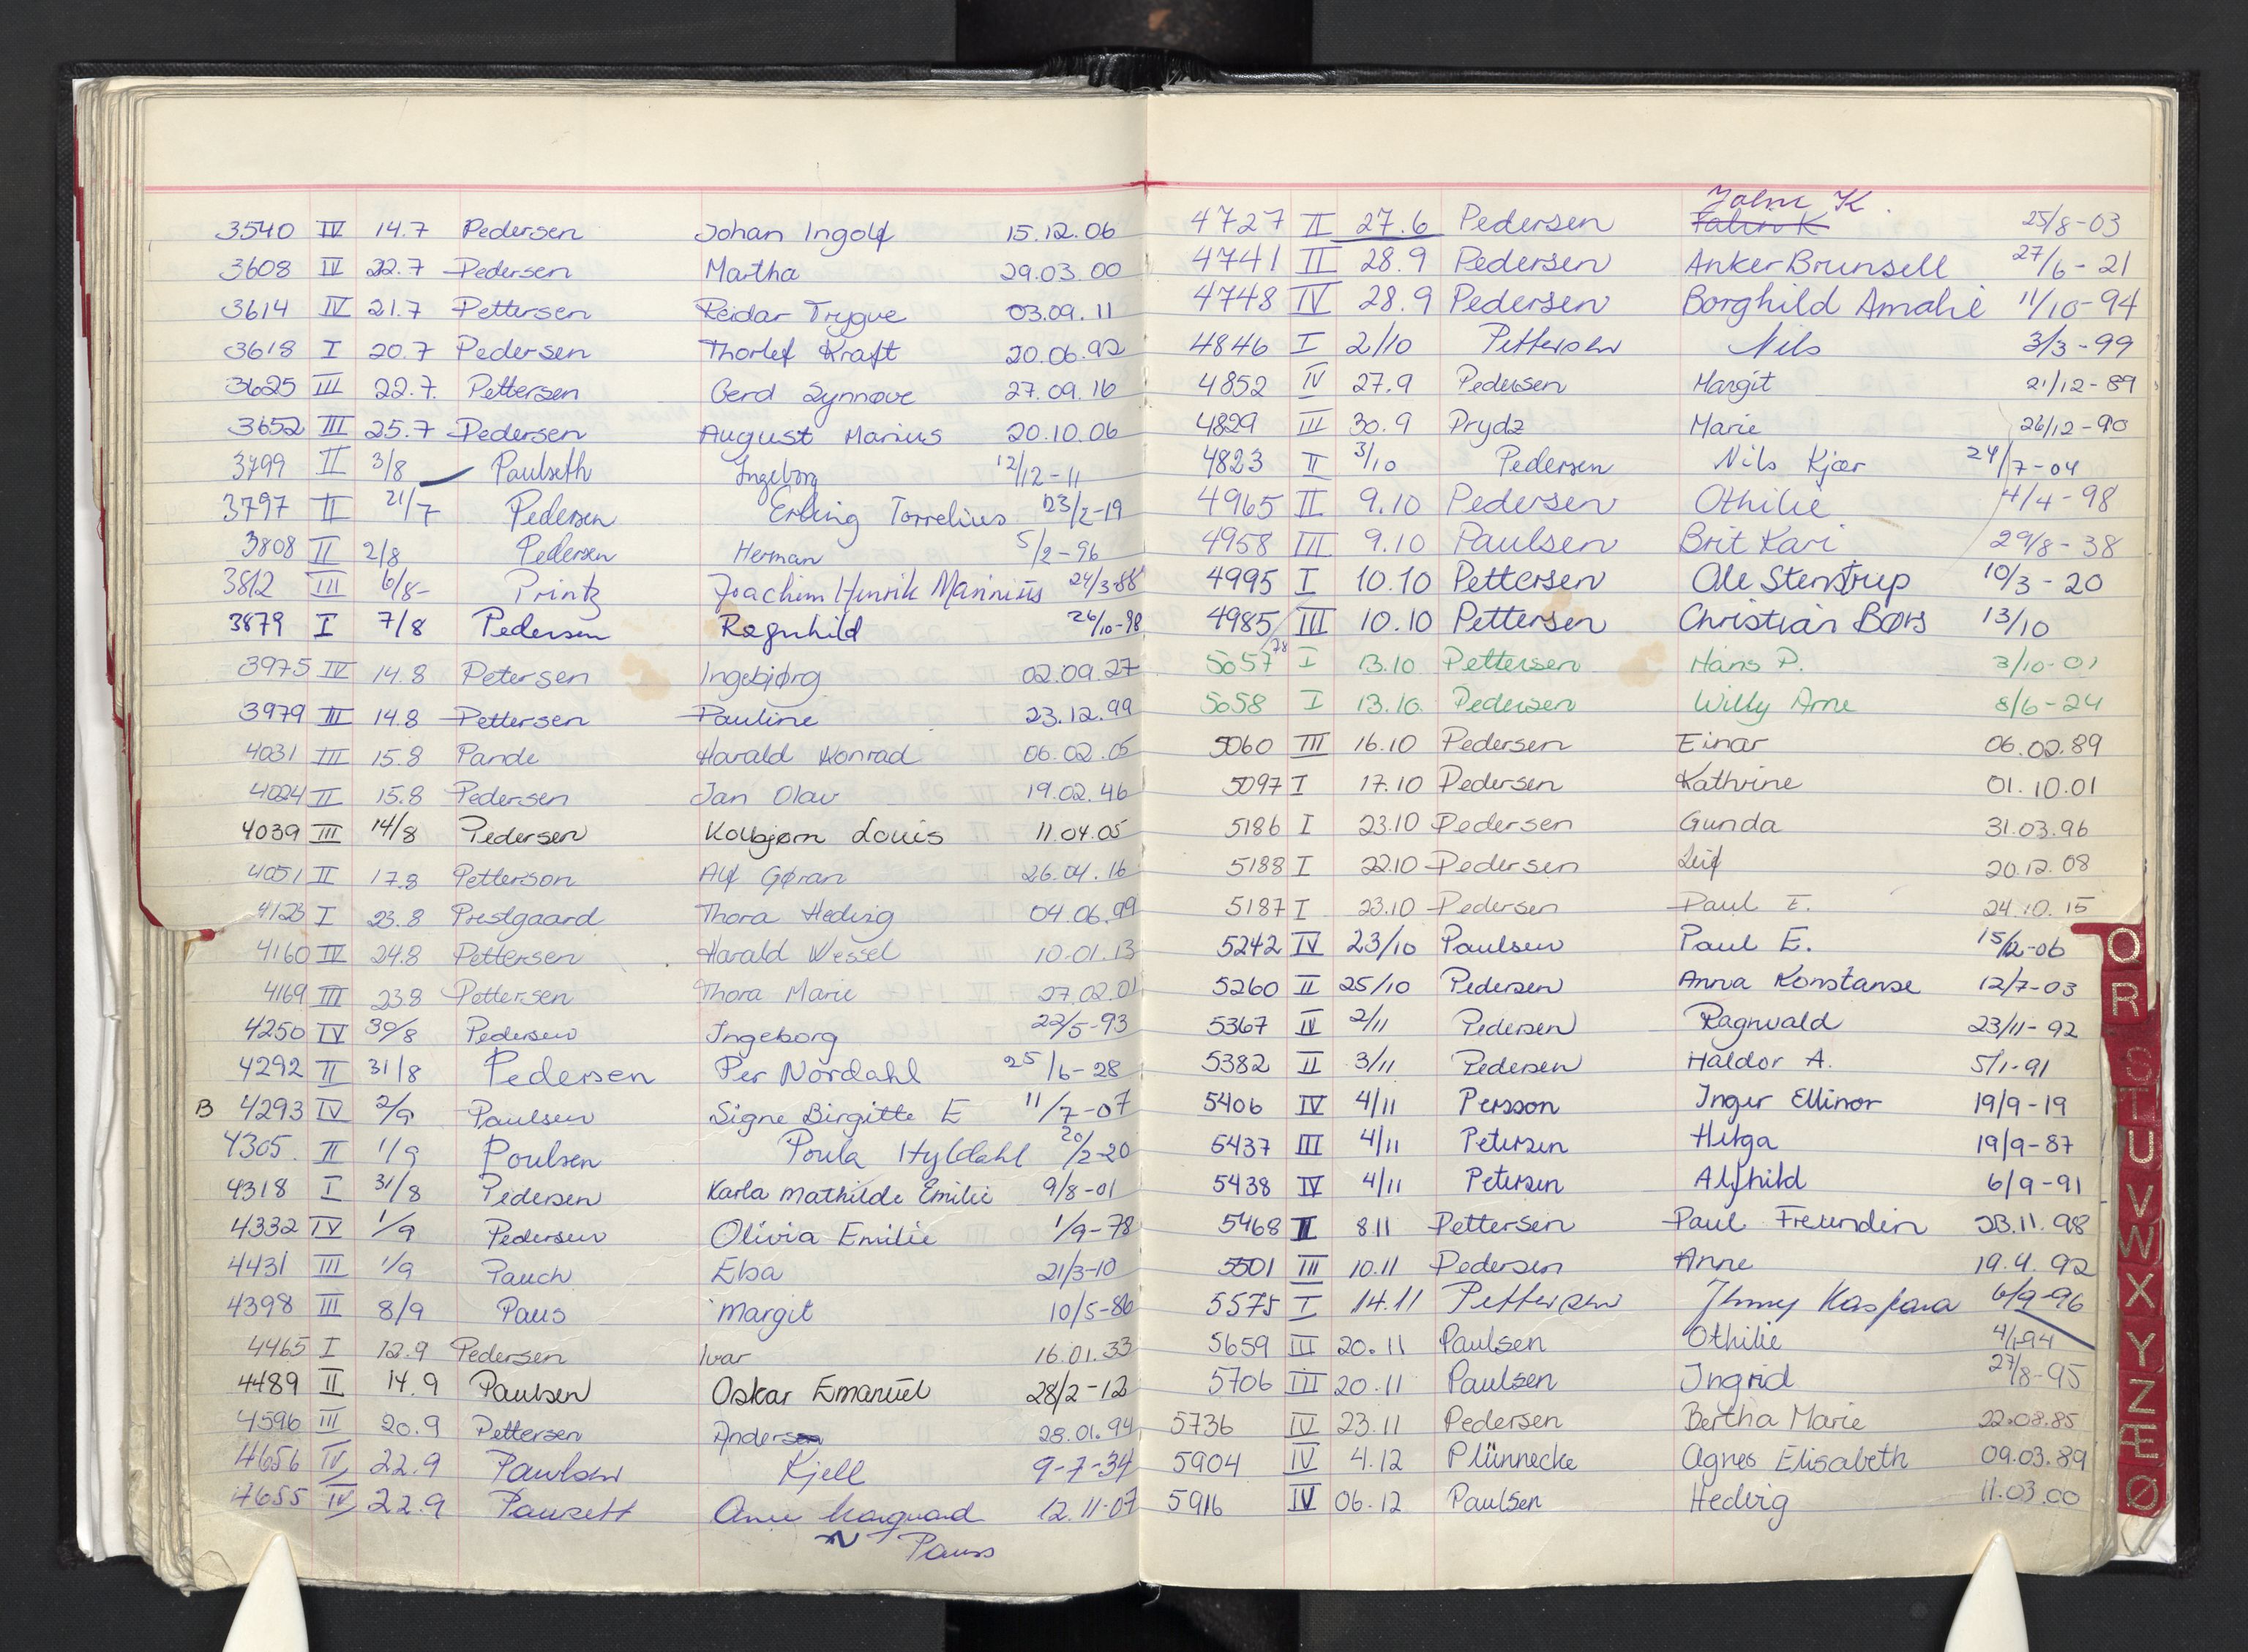 3540 IV 14.7 Pedersen Johan Ingolf 15.12.06
3608 IV 22.7 Pedersen Martha 29.03.00
3614 IV 21.7 Pettersen Reidar Trygve 03.09.11
3618 I 20.7 Pedersen Thorlef Kraft 20.06.92
3625 III 22.7. Pettersen Gerd Synnøve 27.09.16
3652 III 25.7 Pedersen August Marius 20.10.06
3799 II 3/8 Paulseth Ingeborg 12/12-11
3797 II 21/7 Pedersen Erling Torrelius 23/2-19
3808 II 2/8 Pedersen Herman 5/2-96
3812 III 6/8- Printz Joachim Henrik Marinius 24/3-88
3879 I 7/8 Pedersen Ragnhild 26/10-98
3975 IV 14.8 Petersen Ingebjørg 02.09.27
3979 III 14.8 Pettersen Pauline 23.12.99
4031 III 15.8 Pande Harald Konrad 06.02.05
4024 II 15.8 Pedersen Jan Olav 19.02.46
4039 III 14/8 Pedersen Kolbjørn Louis 11.04.05
4051 II 17.8 Petterson Alf Gøran 26.04.16
4123 I 23.8 Prestgaard Thora Hedvig 04.06.99
4160 IV 24.8 Pettersen Harald Wessel 10.01.13
4169 III 23.8 Pettersen Thora Marie 27.02.01
4250 IV 30/8 Pedersen Ingeborg 22/5-93
4292 II 31/8 Pedersen Per Nordahl 25/6-28
B 4293 IV 2/9 Paulsen Signe Birgitte E 11/7-07
4305. II 1/9 Poulsen Poula Hyldahl 20/2-20
4318 I 31/8 Pedersen Karla Mathilde Emilie 9/8-01
4332 IV 1/9 Pedersen Olivia Emilie 1/9-78
4431 III 1/9 Pauch Elsa 21/3-10
4398 III 8/9 Paus Margit 10/5-86
4465 I 12.9 Pedersen Ivar 16.01.33
4489 II 14.9 Paulsen Oskar Emanuel 28/2-12
4596 III 20.9 Pettersen Anders 28.01.94
4656 IV 22.9 Paulsen Kjell 9-7-34
4655 IV 22.9 Pauzett 12.11-07
Pauss
Jalm K.
4727 II 27.6 Pedersen Falin K 25/8-03
4741 II 28.9 Pedersen Anker Brunsell 27/6-21
4748 IV 28.9 Pedersen Borghild Amalie 11/10-94
4846 I 2/10 Pettersen Nils 3/3-99
4852 IV 27.9 Pedersen Margit 21/12-89
4829 III 30.9 Prydz Marie 26/12-90
4823 II 3/10 Pedersen Nils Kjær 24/7-04
4965 II 9.10 Pedersen Othilie 4/4-98
4958 III 9.10 Paulsen Brit Kari 29/8-38
4995 I 10.10 Pettersen Ole Stenstrup 10/3-20
4985 III 10.10 Pettersen Christian Børs 13/10
78
5057 I 13.10 Pettersen Hans P. 3/10-01
5058 I 13.10. Pedersen Willy Arne 8/6-24
5060 III 16.10 Pedersen Einar 06.02.89
5097 I 17.10 Pedersen Kathrine 01.10.01
5186 I 23.10 Pedersen Gunda 31.03.96
5188 I 22.10 Pedersen Leif 20.12.08
5187 I 23.10 Pedersen Paul E. 24.10.15
5242 IV 23/10 Paulsen Paul E. 15/12-06
5260 II 25/10 Pedersen Anna Konstanse 12/7-03
5367 IV 2/11 Pedersen Ragnvald 23/11-92
5382 II 3/11 Pedersen Haldor A. 5/1-91
5406 IV 4/11 Persson Inger Ellinor 19/9-19
5437 III 4/11 Petersen Helga 19/9-87
5438 IV 4/11 Petersen Alfhild 6/9-91
5468 II 8.11 Pettersen Paul Freundin 23.11.98
5501 III 10.11 Pedersen Anne 19.4.92
5575 I 14.11 Pettersen Jenny Kaspara 6/9-96
5659 III 20.11 Paulsen Othilie 4/1-94
5706 III 20.11 Paulsen Ingrid 27/8-95
5736 IV 23.11 Pedersen Bertha Marie 22.08.85
5904 IV 4.12 Plünnecke Agnes Elisabeth 09.03.89
5916 IV 06.12 Paulsen Hedvig 11.03.00
Q
R
S
T
U
V
W
X
Y
Z
Æ
Ø